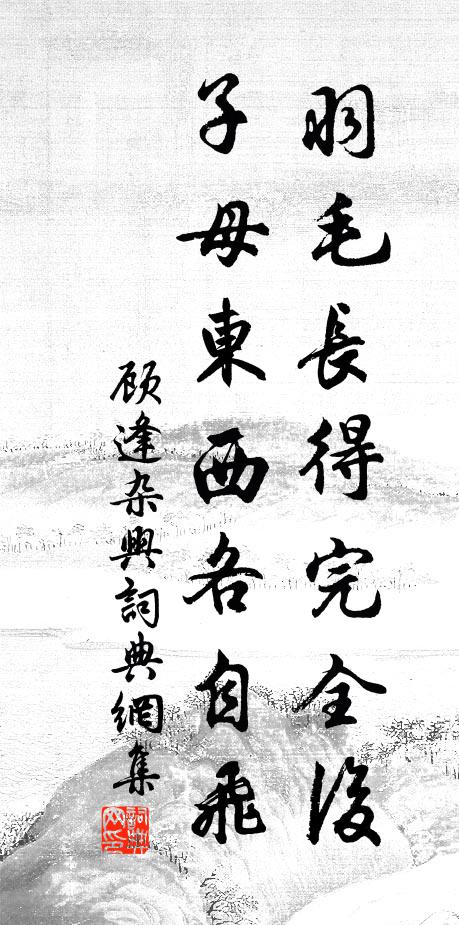 羽毛長得完全後
子母東西各自飛
顾逢杂興詞典網集
詞典网印